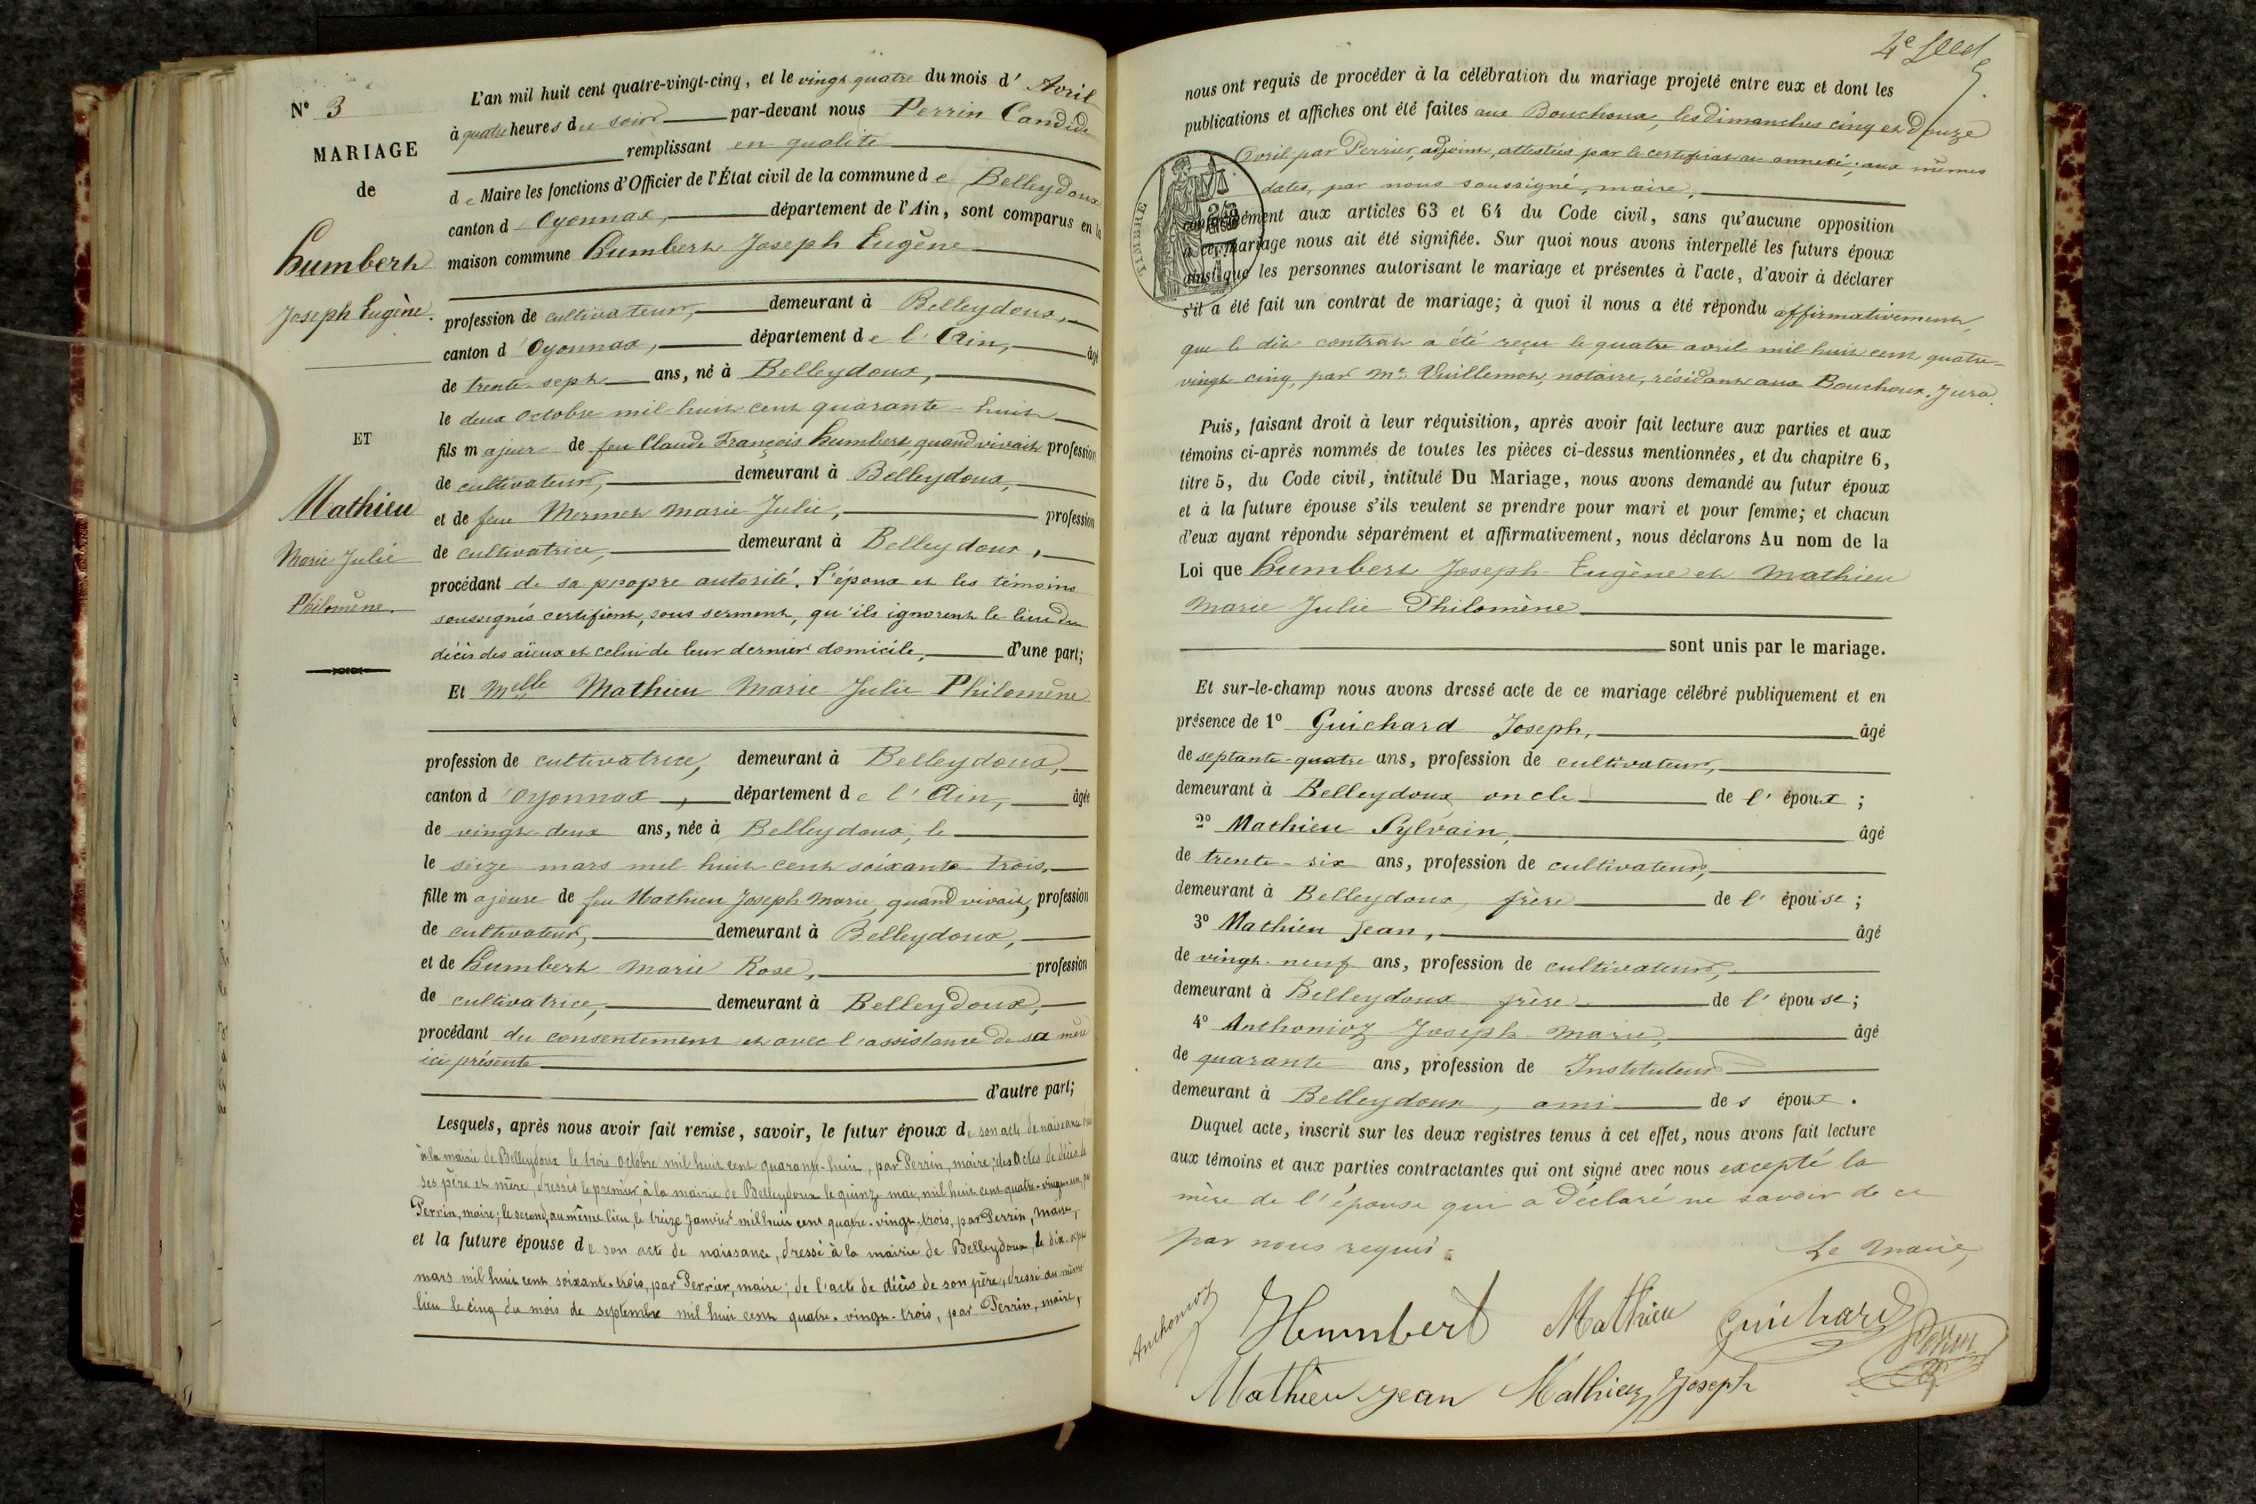 N° 3
MARIAGE
de
Humbert
Joseph Eugène.
ET
Mathieu
Marie Julie
Philomène.
L'an mil huit cent quatre-vingt-cinq, et le vingt quatre du mois d'Avril
à quatre heures du soir par-devant nous Perrin Candide
remplissant en qualité
de Maire les fonctions d'Officier de l'État civil de la commune de Belleydoux
canton d'Oyonnax, département de l'Ain, sont comparus en la
maison commune Humbert Joseph Eugène
profession de cultivateur, demeurant à Belleydoux,
canton d'Oyonnax, département de l'Ain, âgé
de trente-sept ans, né à Belleydoux,
le deux octobre mil huit cent quarante-huit
fils majeur de feu Claude François Humbert, quand vivait profession
de cultivateur, demeurant à Belleydoux,
et de feue Mermet Marie Julie, profession
de cultivatrice, demeurant à Belleydoux,
procédant de sa propre autorité. L'époux et les témoins
soussignés certifient, sous serment, qu'ils ignorent le lieu du
décès des aïeux et celui de leur dernier domicile, d'une part;
Et Melle Mathieu Marie Julie Philomène
profession de cultivatrice, demeurant à Belleydoux,
canton d'Oyonnax, département de l'Ain, âgée
de vingt-deux ans, née à Belleydoux, le
le seize mars mil huit cent soixante trois,
fille majeure de feu Mathieu Joseph Marie, quand vivait, profession
de cultivateur, demeurant à Belleydoux,
et de Humbert Marie Rose, profession
de cultivatrice, demeurant à Belleydoux,
procédant du consentement et avec l'assistance de sa mère
ici présente
d'autre part;
Lesquels, après nous avoir fait remise, savoir, le futur époux de son acte de naissance
à la mairie de Belleydoux le trois octobre mil huit cent quarante-huit, par Perrin, maire; des actes de décès de
ses père et mère, dressés le premier à la mairie de Belleydoux le quinze mai, mil huit cent quatre-vingt-un, par
Perrin, maire; le second, au même lieu, le treize janvier mil huit cent quatre-vingt-trois, par Perrin, maire,
et la future épouse de son acte de naissance, dressé à la mairie de Belleydoux, le dix-sept
mars mil huit cent soixante-trois, par Perrier, maire; de l'acte de décès de son père, dressé au même
lieu le cinq du mois de septembre mil huit cent quatre-vingt-trois, par Perrin, maire,
nous ont requis de procéder à la célébration du mariage projeté entre eux et dont les
publications et affiches ont été faites aux Bouchoux, les dimanches cinq et douze
Avril par Perrier, adjoint, attestées par le certificat ci annexé; aux mêmes
dates, par nous soussigné, maire,
TIMBRE
conformément aux articles 63 et 64 du Code civil, sans qu'aucune opposition
à ce mariage nous ait été signifiée. Sur quoi nous avons interpellé les futurs époux
ainsi que les personnes autorisant le mariage et présentes à l'acte, d'avoir à déclarer
s'il a été fait un contrat de mariage; à quoi il nous a été répondu affirmativement,
que le dit contrat a été reçu le quatre avril mil huit cent quatre-
vingt cinq, par Me Vuillemot, notaire, résidant aux Bouchoux. Jura.
Puis, faisant droit à leur réquisition, après avoir fait lecture aux parties et aux
témoins ci-après nommés de toutes les pièces ci-dessus mentionnées, et du chapitre 6,
titre 5, du Code civil, intitulé Du Mariage, nous avons demandé au futur époux
et à la future épouse s'ils veulent se prendre pour mari et pour femme; et chacun
d'eux ayant répondu séparément et affirmativement, nous déclarons Au nom de la
Loi que Humbert Joseph Eugène et Mathieu
Marie Julie Philomène
sont unis par le mariage.
Et sur-le-champ nous avons dressé acte de ce mariage célébré publiquement et en
présence de 1° Guichard Joseph, âgé
de septante-quatre ans, profession de cultivateur,
demeurant à Belleydoux oncle de l'époux;
2° Mathieu Sylvain, âgé
de trente-six ans, profession de cultivateur,
demeurant à Belleydoux, frère de l'épouse;
3° Mathieu Jean, âgé
de vingt-neuf ans, profession de cultivateur,
demeurant à Belleydoux frère de l'épouse;
4° Anthonioz Joseph-Marie, âgé
de quarante ans, profession de Instituteur
demeurant à Belleydoux, ami des époux.
Duquel acte, inscrit sur les deux registres tenus à cet effet, nous avons fait lecture
aux témoins et aux parties contractantes qui ont signé avec nous excepté la
mère de l'épouse qui a déclaré ne savoir de ce
par nous requis.
Le Maire,
Anthonioz Humbert Mathieu Guichard Perrin
Mathieu Jean Mathieu Joseph